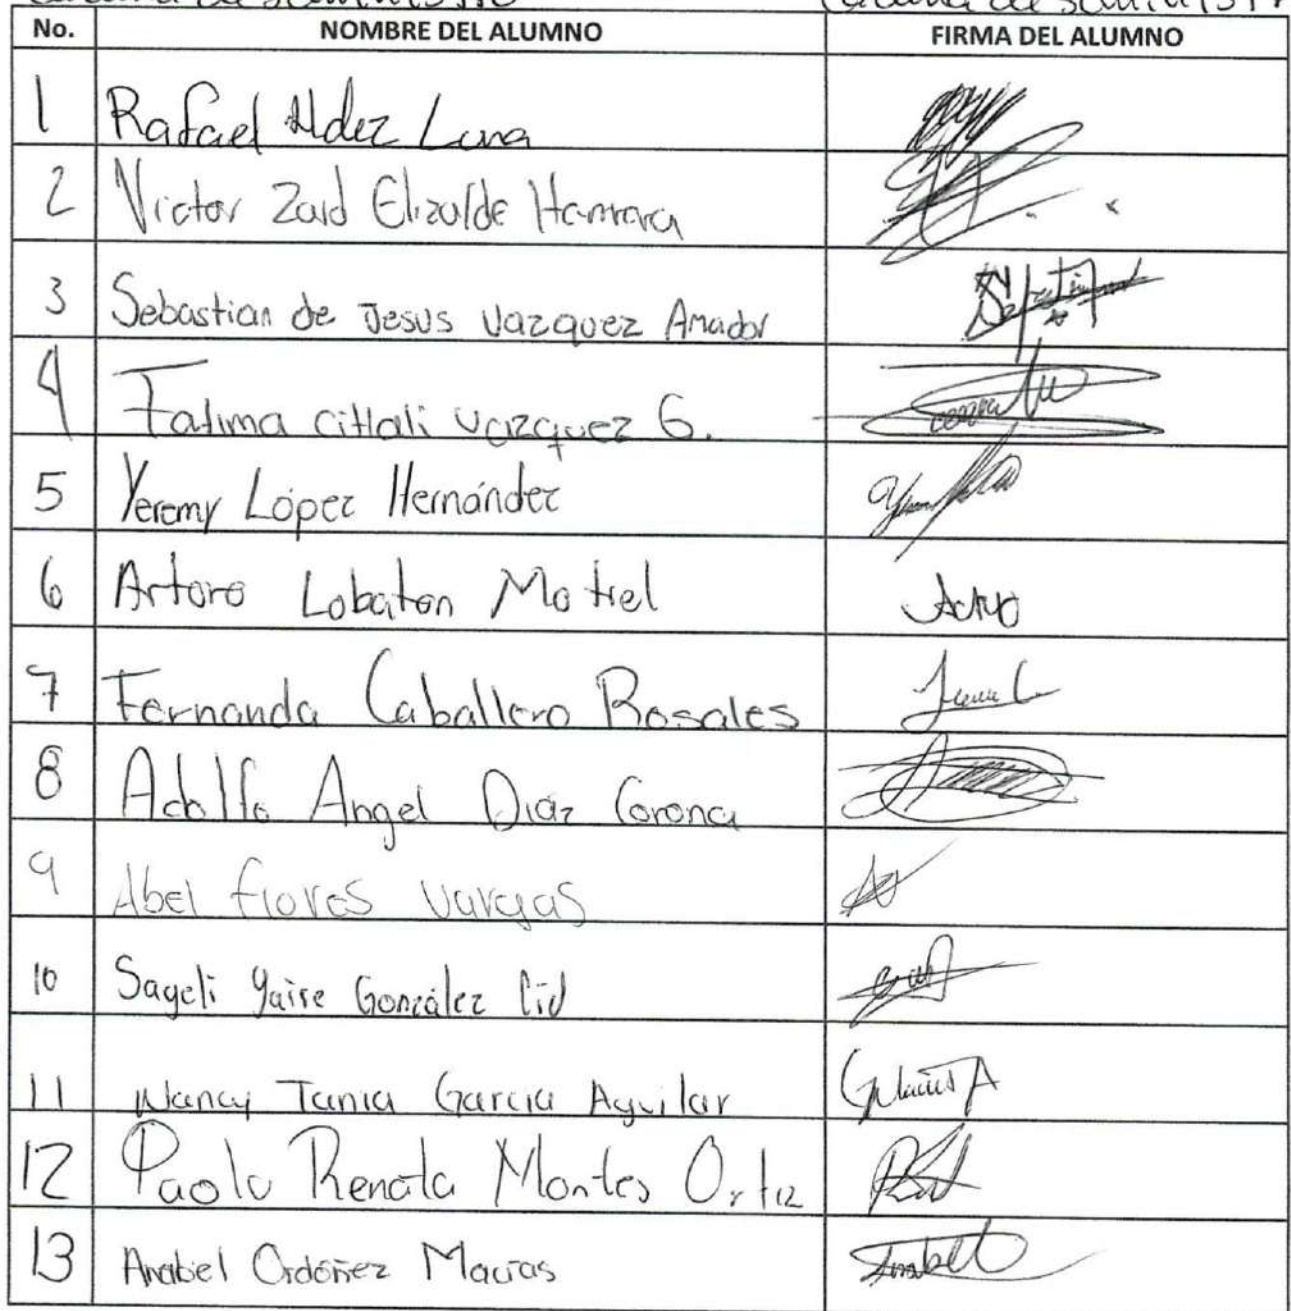 Cadena de Suministro Cadena de Suministr
No. NOMBRE DEL ALUMNO FIRMA DEL ALUMNO
1 Rafael Hdez Luna
2 Victor Zaid Elizalde Herrera
3 Sebastian de Jesus Vazquez Amador
4 Fatima citlali vazquez G.
5 Yeremy López Hernández
6 Arturo Lobaton Motiel
7 Fernanda Caballero Rosales
8 Adolfo Angel Diáz Corona
9 Abel flores vargas
10 Sageli Yaire González Cid
11 Nancy Tania Garcia Aguilar
12 Paola Renata Montes Ortiz
13 Anabel Ordóñez Macías